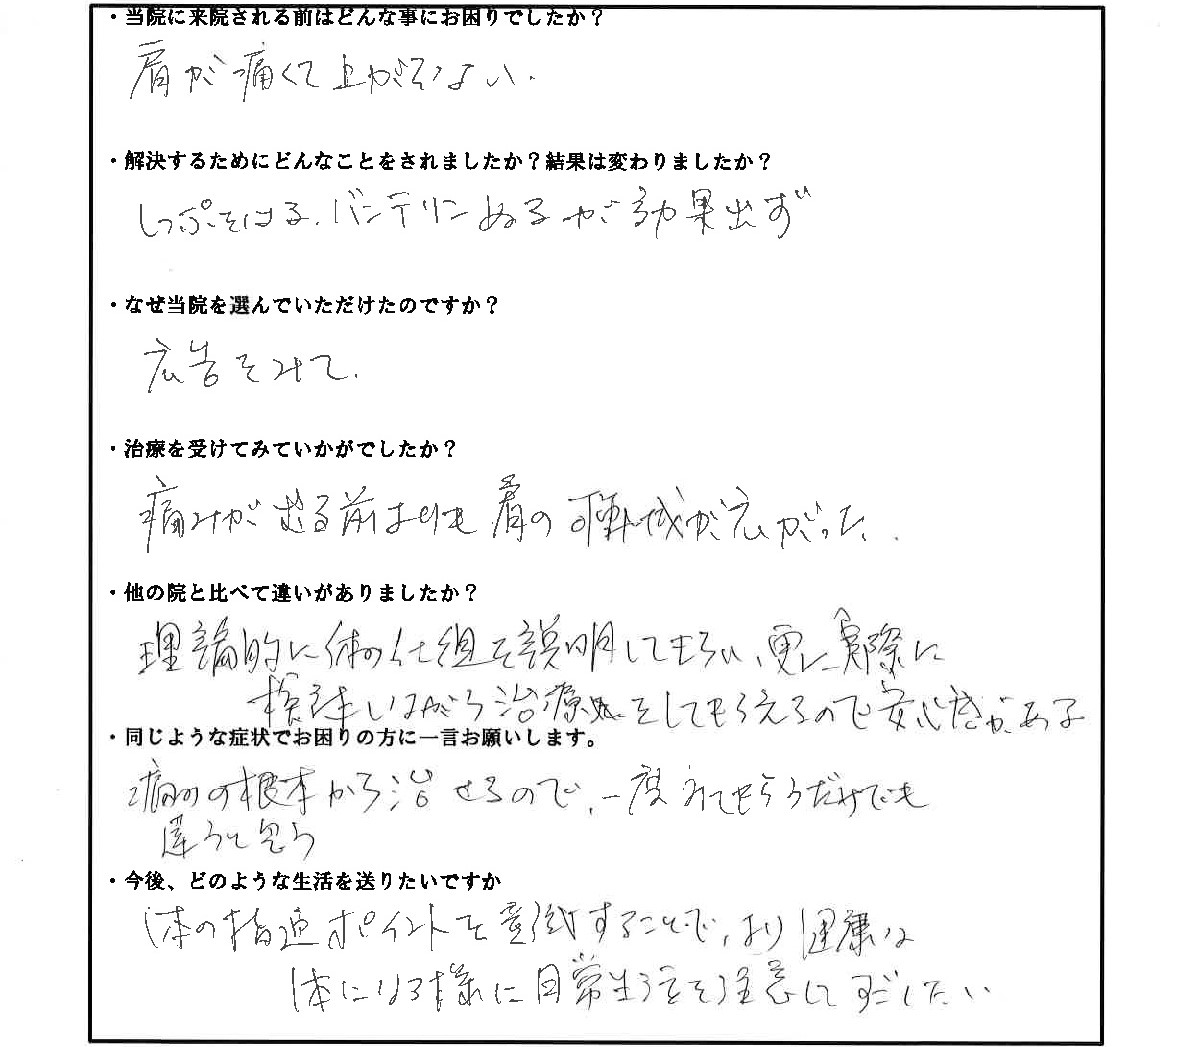 ・当院に来院される前はどんな事にお困りでしたか？
肩が痛くて上がらない.
・解決するためにどんなことをされましたか？結果は変わりましたか？
しっぷをはる、バンテリンぬるが効果出ず
・なぜ当院を選んでいただけたのですか？
広告をみて.
・治療を受けてみていかがでしたか？
痛みが出る前よりも肩の可動域が広がった.
・他の院と比べて違いがありましたか？
理論的に体の仕組を説明してもらい、更に実際に
しながら治療をしてもらえるので安心感がある
・同じような症状でお困りの方に一言お願いします。
痛みの根本から治せるので、一度みてもらうだけでも
違うと思う
・今後、どのような生活を送りたいですか
体の指適ポイントを意識することで、より健康な
体になる様に日常生活を注意してすごしたい